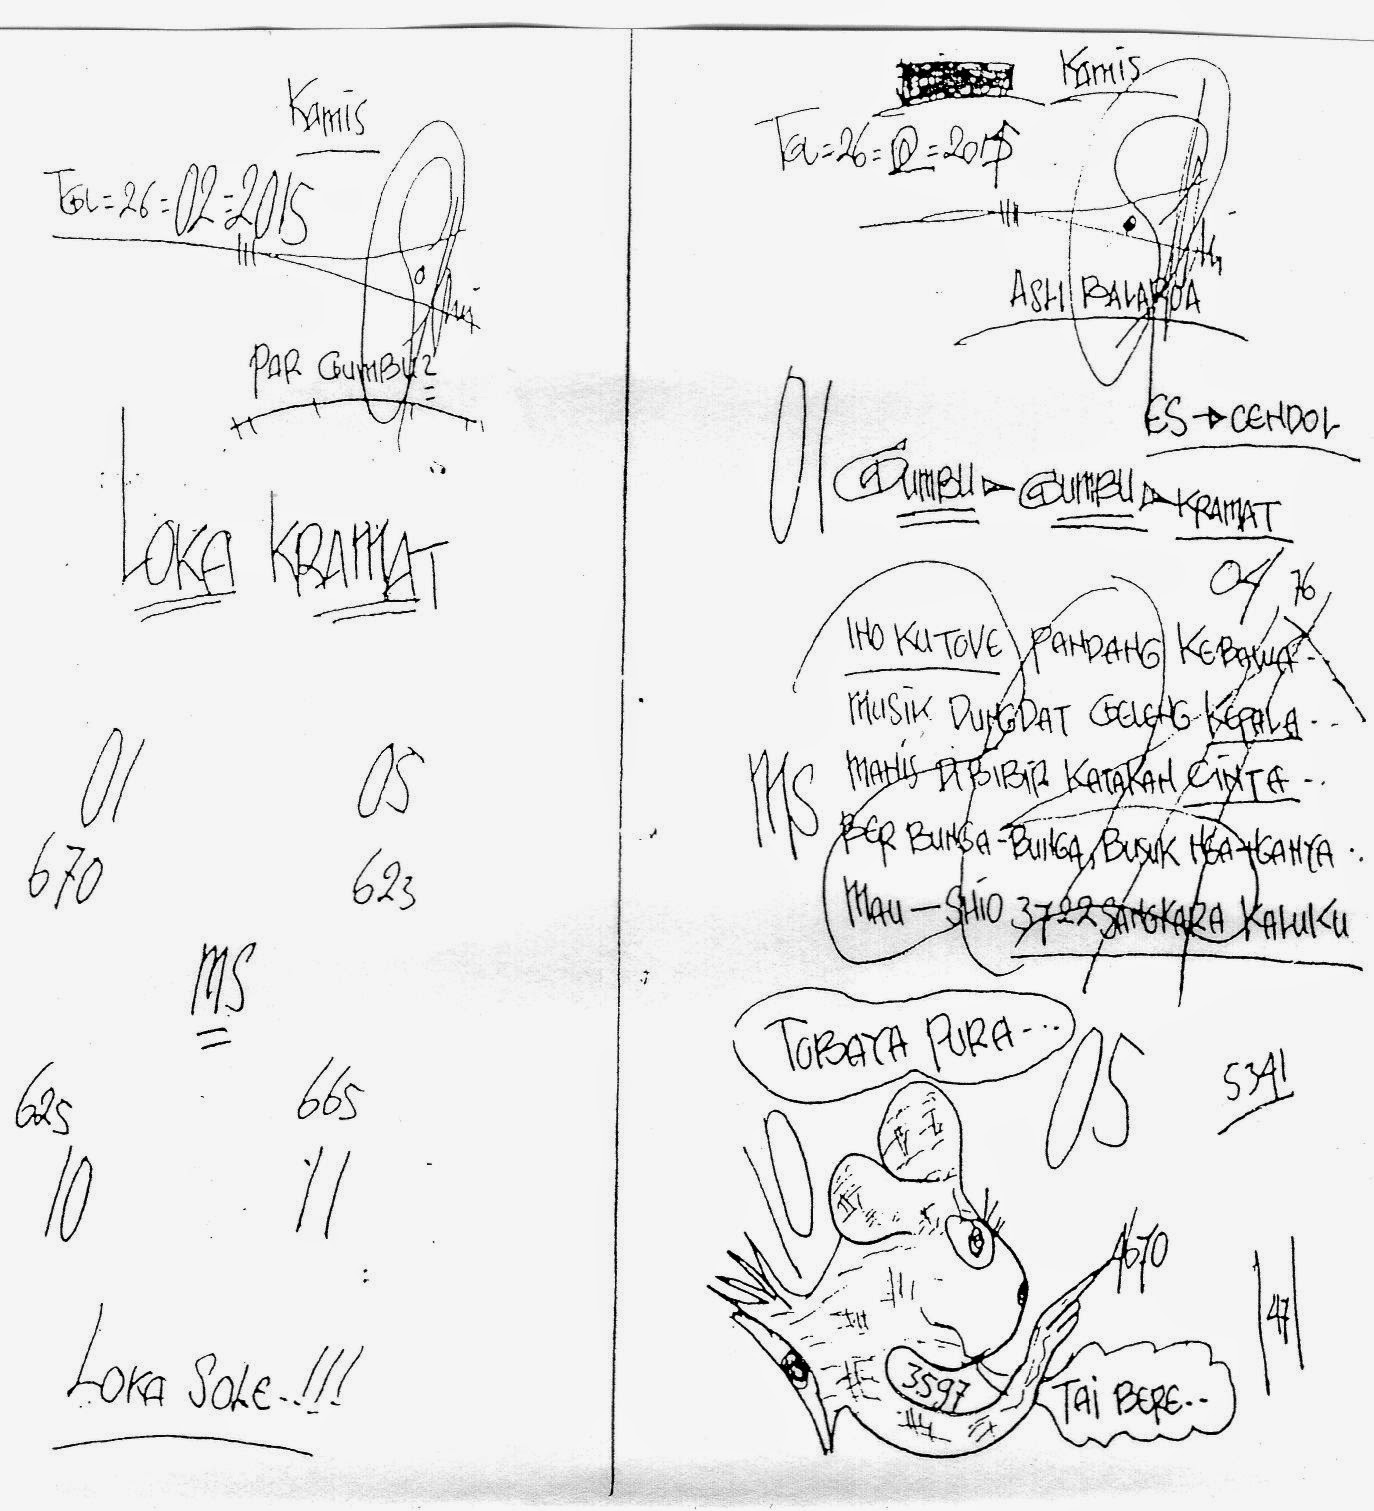 Kamis
TGL=26=02=2015
PAR GUMBUZ
LOKA KRAMAT
01 05
670 623
MS
625 665
10 11
LOKA SOLE..!!!
Kamis
TGL=26=02=2015
ASLI BALAROA
ES CENDOL
01 GUMBU GUMBU KRAMAT
04 76
INO KUTOVE PANDANG KEBAWA...
MUSIK DUNGDAT GELENG KEPALA...
MS
MANIS DIBIBIR KATAKAN CINTA...
BER BUNGA-BUNGA, BUSUK NGA-NGANYA..
MAU-SHIO 3722 SANGKARA KALUKU
TOBAYA PURA...
05 5341
10
4670
47
3597
TAI BERE..